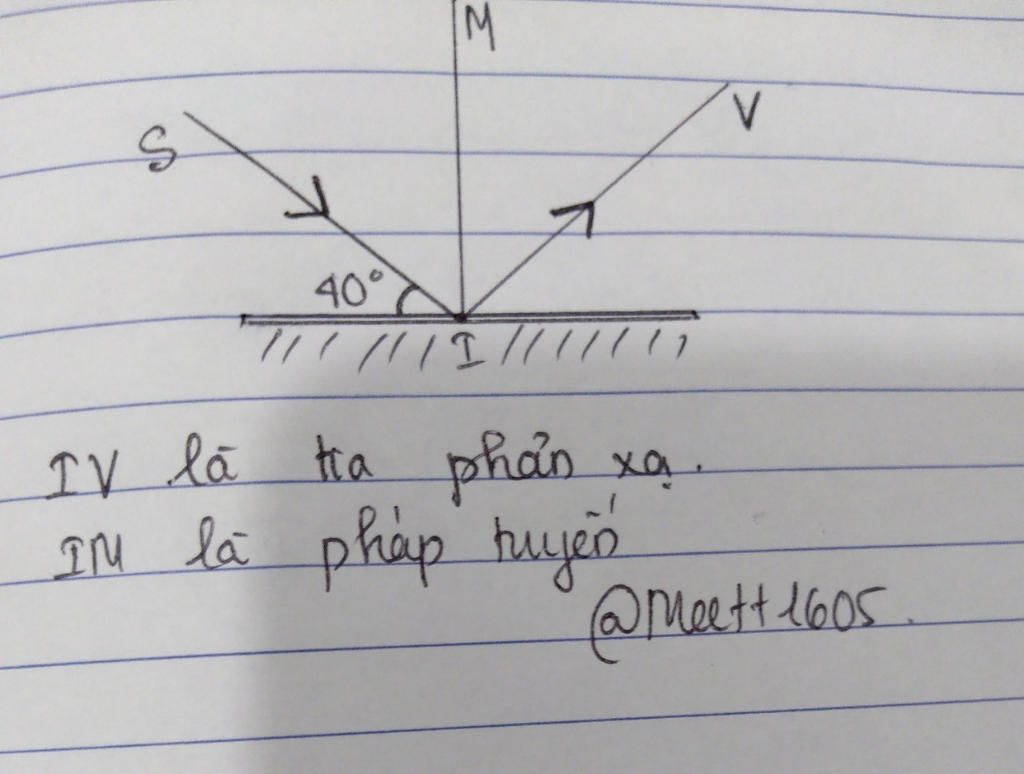 M
S
V
40°
I
IV là tia phản xạ.
IM là pháp tuyến
@Meett1605.